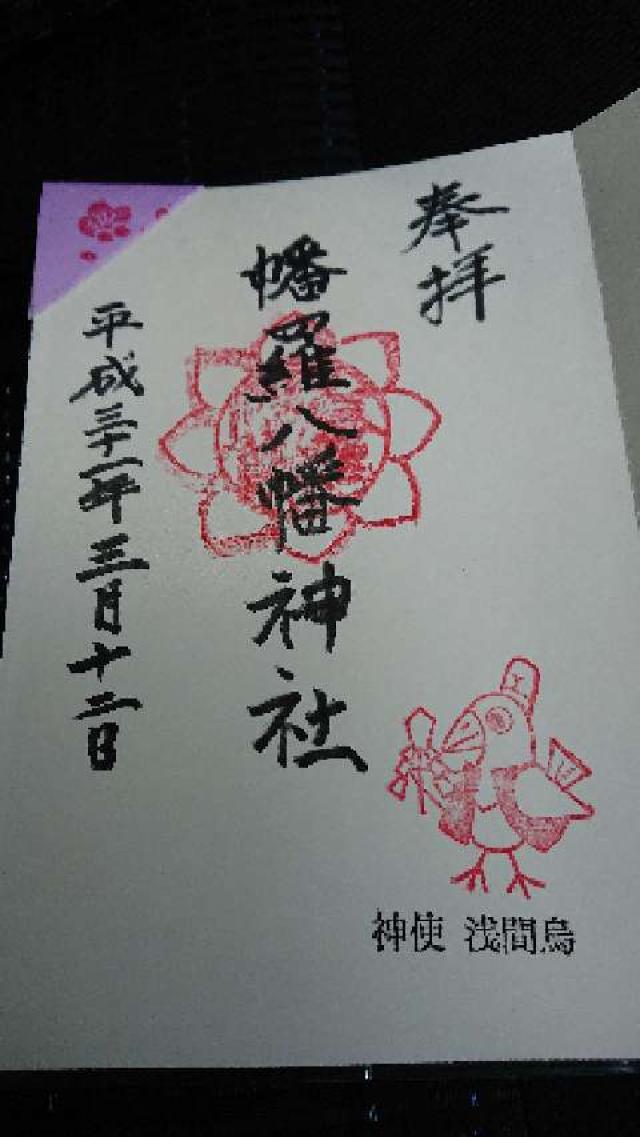 奉拝
幡羅八幡神社
平成三十一年三月十二日
神使 浅間烏